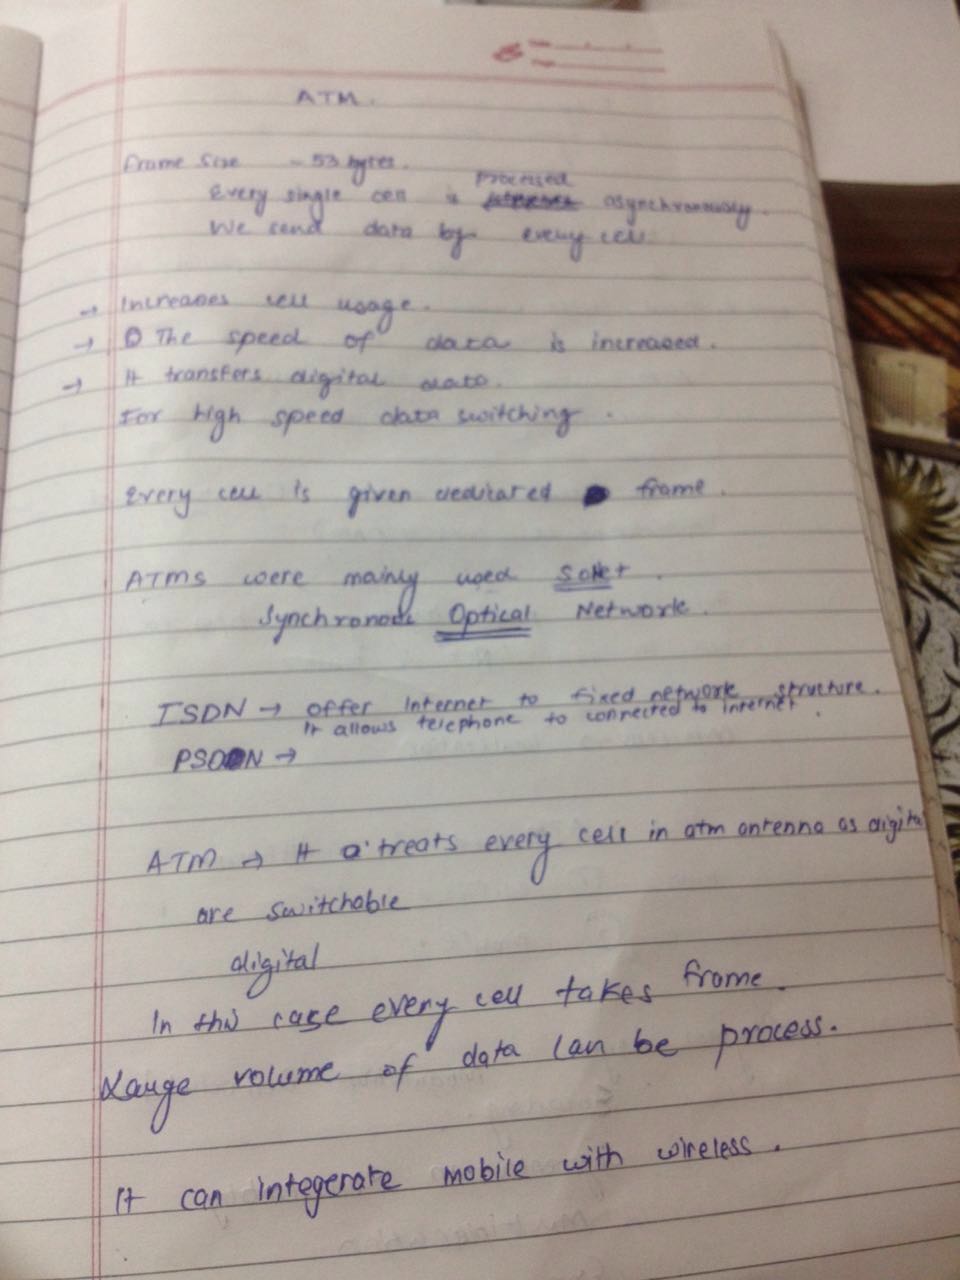 ATM.
frame size - 53 bytes.
Processed
Every single cell is asynchronously.
We send data by every cell
→ Increases cell usage.
→ The speed of data is increased.
→ It transfers digital data.
For high speed data switching.
Every cell is given dedicated frame.
ATMs were mainly used SONET.
Synchronous Optical Network.
ISDN → offer Internet to fixed network structure.
It allows telephone to connected to internet.
→
ATM → It treats every cell in atm antenna as digital
are switchable
digital
In this case every cell takes frame.
Large volume of data can be process.
It can integerate mobile with wireless.